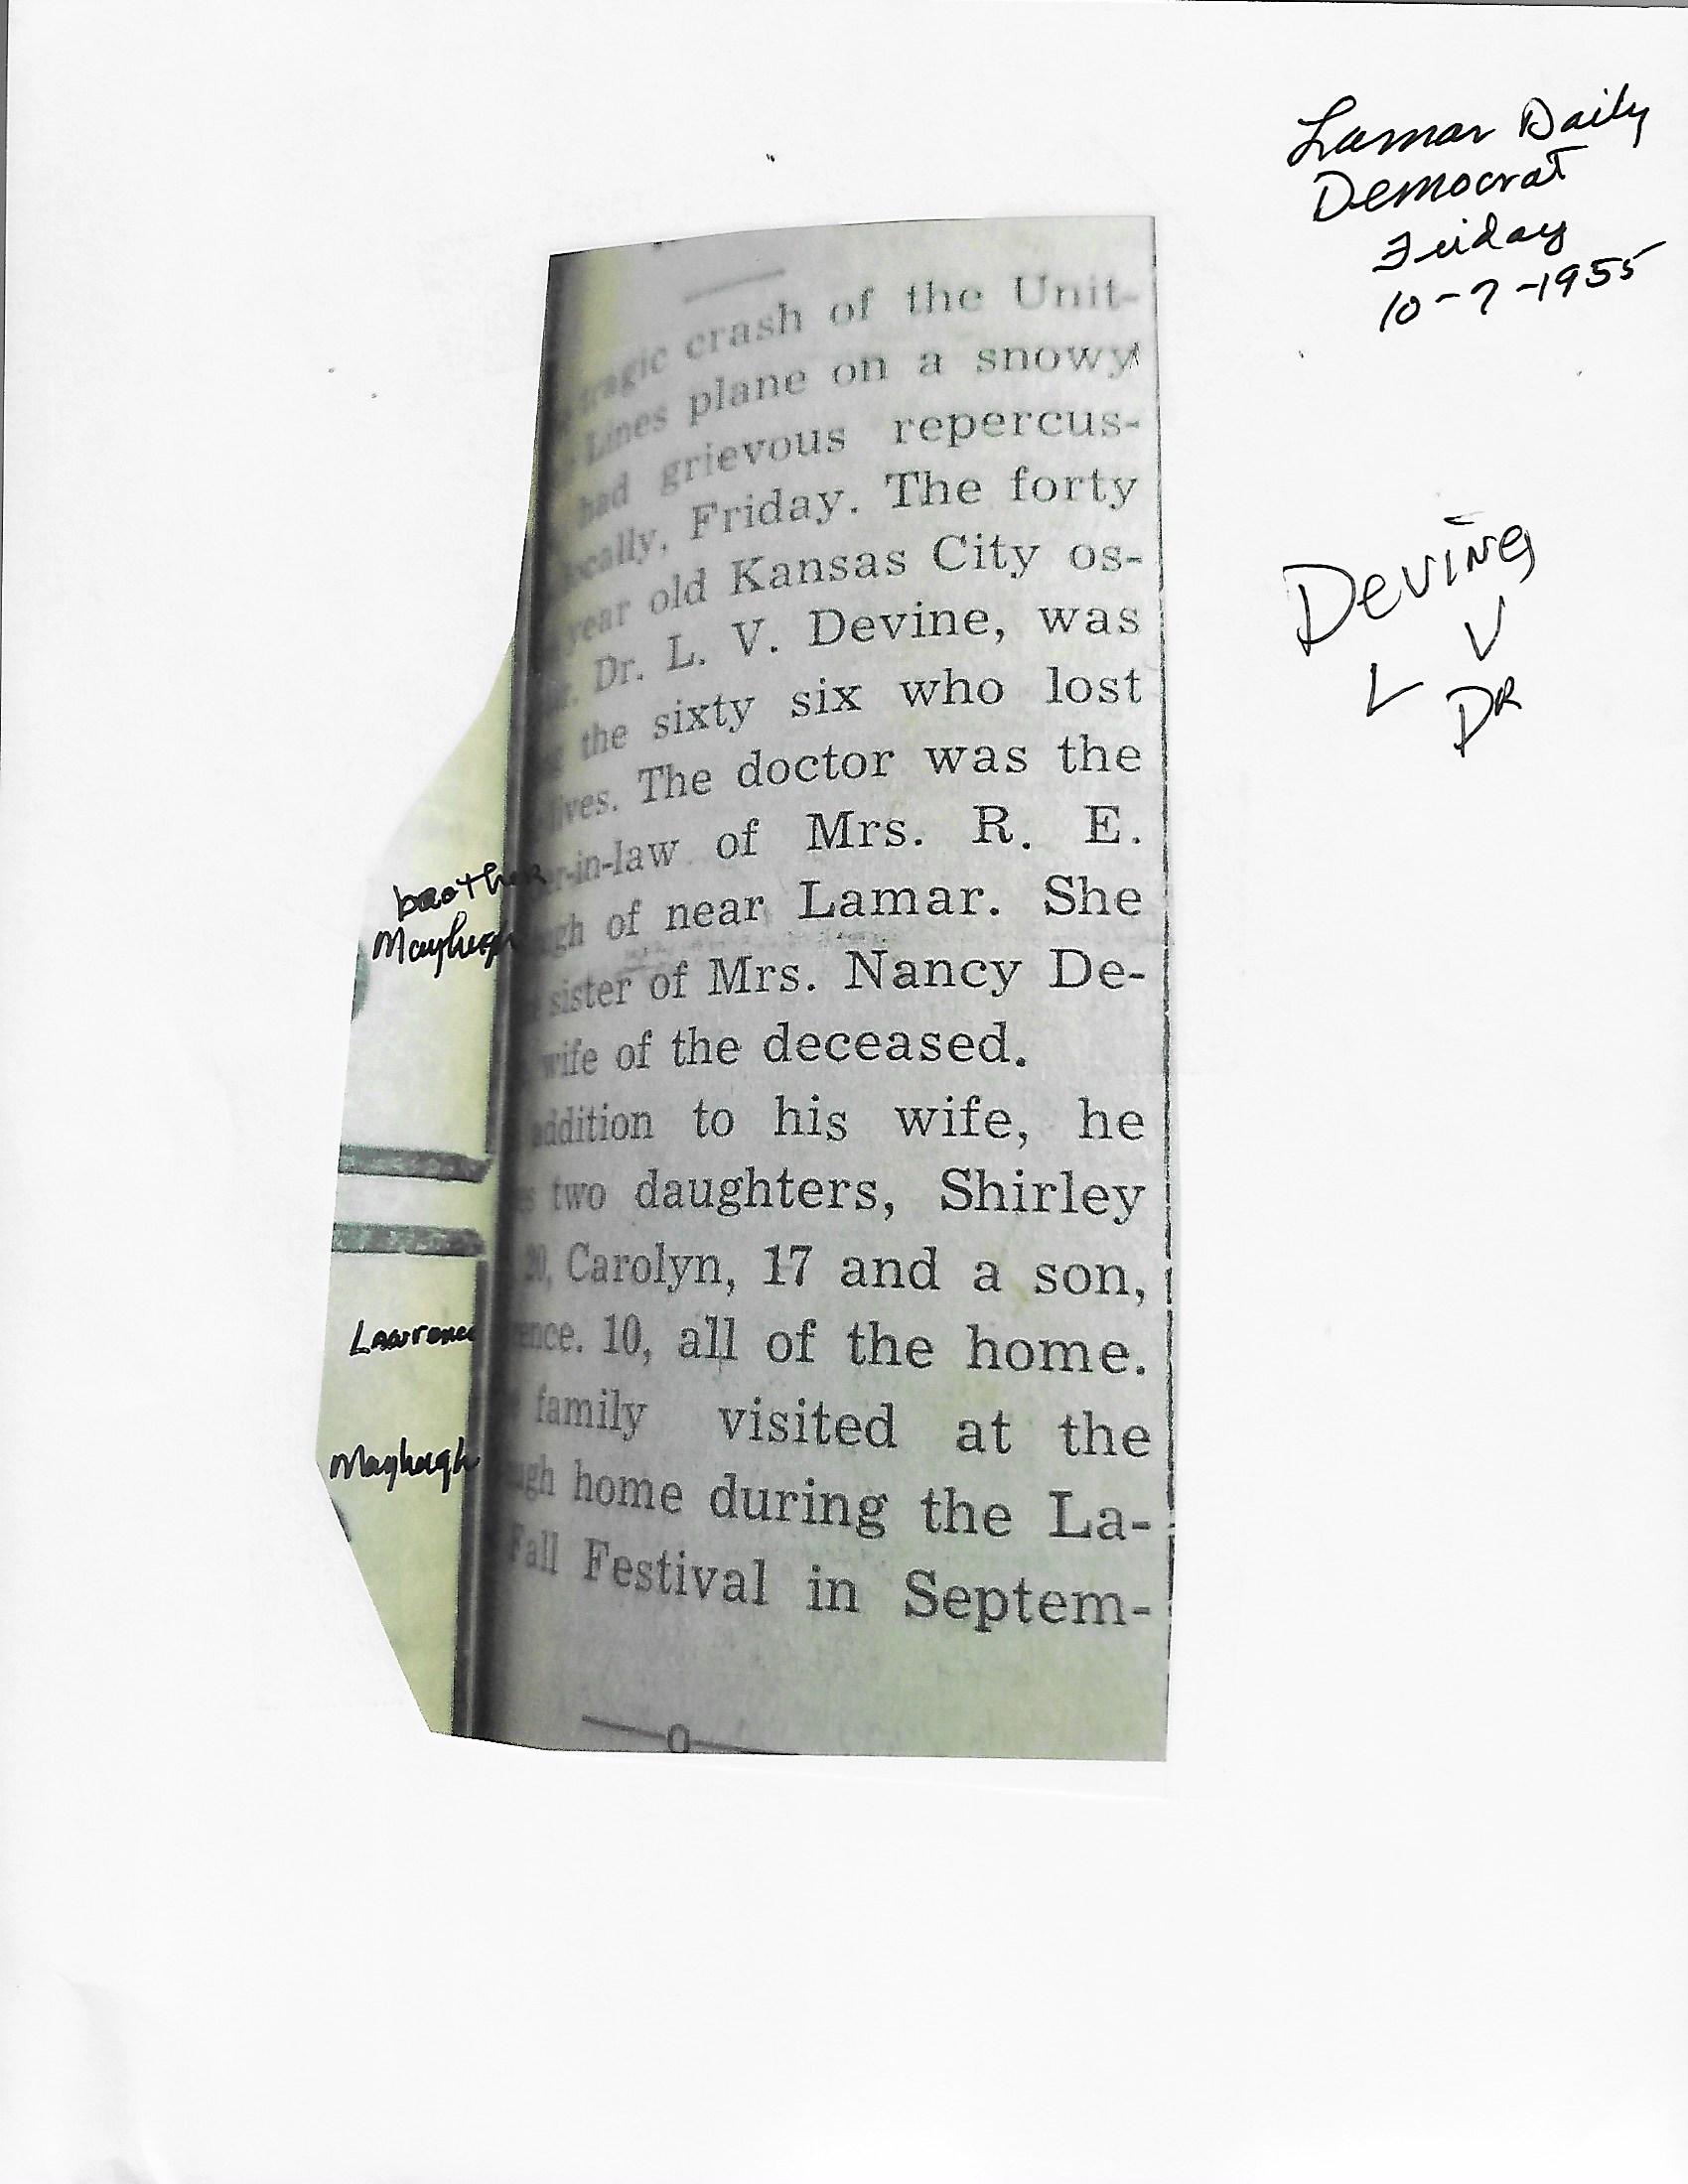 Lamar Daily
Democrat
Friday
10-7-1955
Devine
L V
DR
tragic crash of the Unit-
Lines plane on a snowy
had grievous repercus-
locally, Friday. The forty
year old Kansas City os-
Dr. L. V. Devine, was
the sixty six who lost
lives. The doctor was the
brother er-in-law of Mrs. R. E.
Mayhugh gh of near Lamar. She
sister of Mrs. Nancy De-
wife of the deceased.
addition to his wife, he
s two daughters, Shirley
20, Carolyn, 17 and a son,
Lawrence ence. 10, all of the home.
family visited at the
Mayhugh ugh home during the La-
Fall Festival in Septem-
O